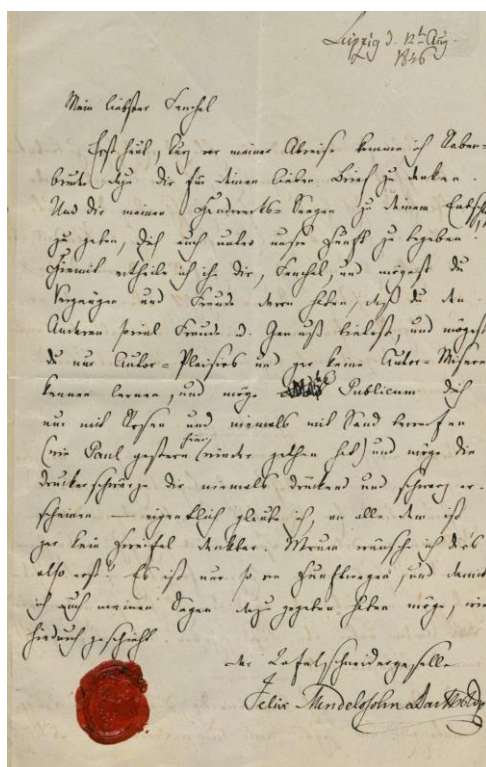 Leipzig d. 12t Aug.
1846
Mein liebster Fenchel
Erst heut, kurz vor meiner Abreise komme ich Raben-
bruder dazu Dir für Deinen lieben Brief zu danken.
Und Dir meinen Handwerks-Seegen zu Deinem Entschluß
zu geben, Dich auch unter unsre Zunft zu begeben.
Hiermit ertheile ich ihn Dir, Fenchel, und mögest du
Vergnügen und Freude daran haben, daß du den
Anderen so viel Freude u. Genuß bietest, und mögest
du nur Autor-Plaisirs und gar keine Autor-Misere
kennen lernen, und möge das Publicum Dich
nur mit Rosen und niemals mit Sand bewerfen
(wie Paul gestern hier wieder gethan hat) und möge die
Druckerschwärze Dir niemals drückend und schwarz er-
scheinen — eigentlich glaube ich, an alle dem ist
gar kein Zweifel denkbar. Warum wünsche ich dir's
also erst? Es ist nur so von Zunftwegen, und damit
ich auch meinen Segen dazu gegeben haben möge, wie
hierdurch geschieht.
der Tafelschneidergeselle
Felix Mendelssohn Bartholdy